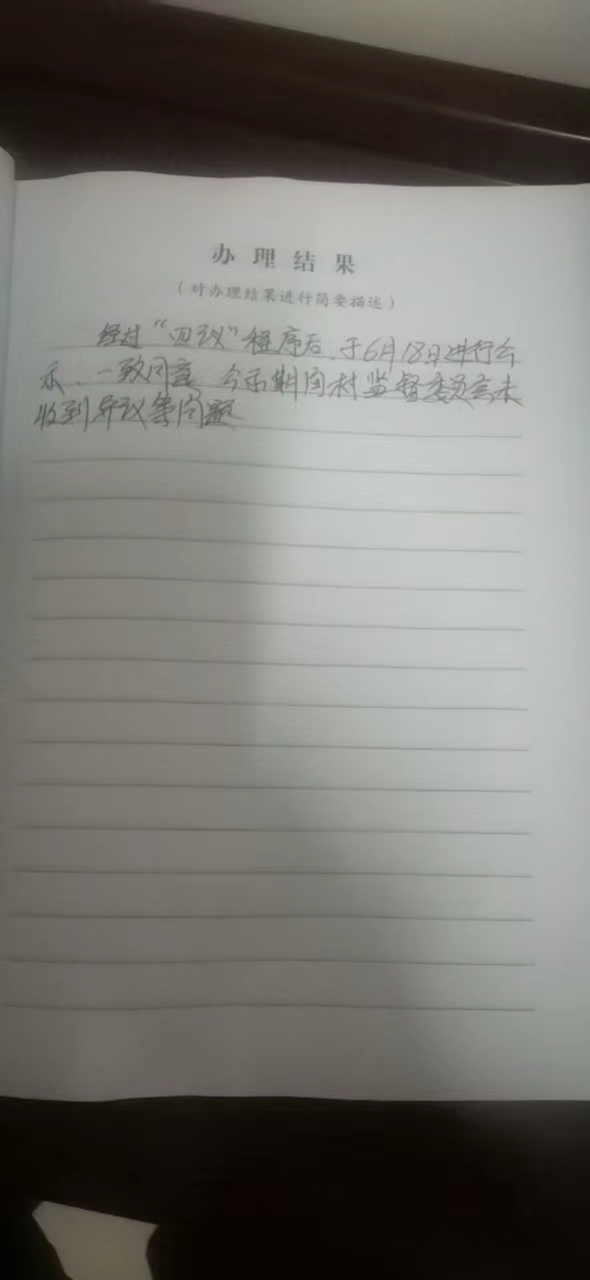 办理结果
（对办理结果进行简要描述）
经过“四议”程序后，于6月18日进行公
示，一致同意，公示期间村监督委员会未
收到异议等问题